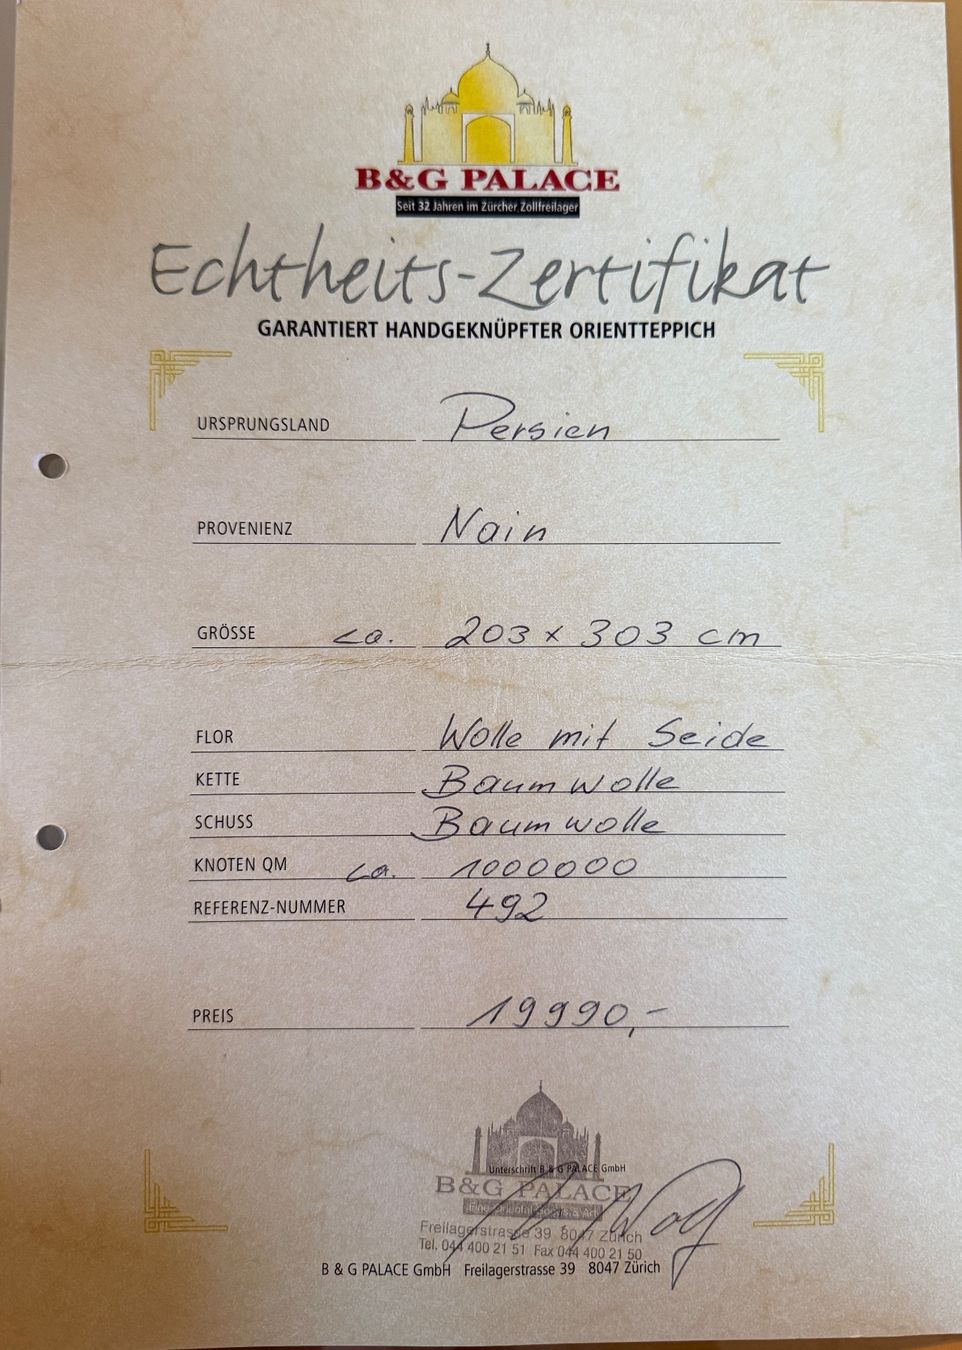 B&G PALACE
Seit 32 Jahren im Zürcher Zollfreilager
Echtheits-Zertifikat
GARANTIERT HANDGEKNÜPFTER ORIENTTEPPICH
URSPRUNGSLAND Persien
PROVENIENZ Nain
GRÖSSE ca. 203 x 303 cm
FLOR Wolle mit Seide
KETTE Baumwolle
SCHUSS Baumwolle
KNOTEN QM ca. 1000000
REFERENZ-NUMMER 492
PREIS 19990,-
Unterschrift B & G PALACE GmbH
B&G PALACE
Fine Oriental
Freilagerstrasse 39 8047 Zürich
Tel. 044 400 21 51 Fax 044 400 21 50
B & G PALACE GmbH Freilagerstrasse 39 8047 Zürich